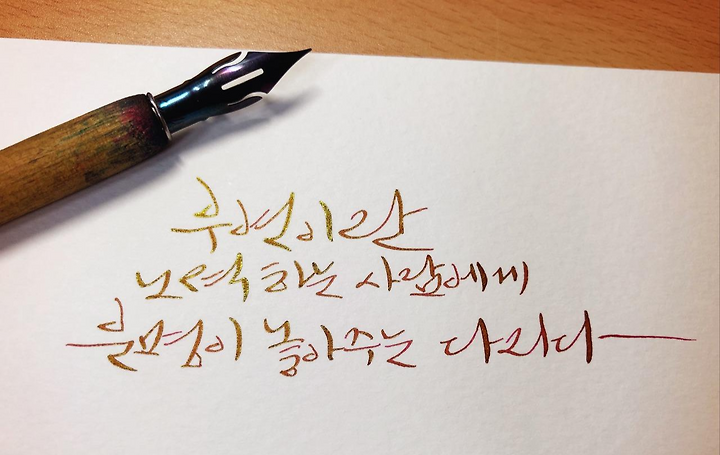 우연이란
노력하는 사람에게
운명이 놓아주는 다리다